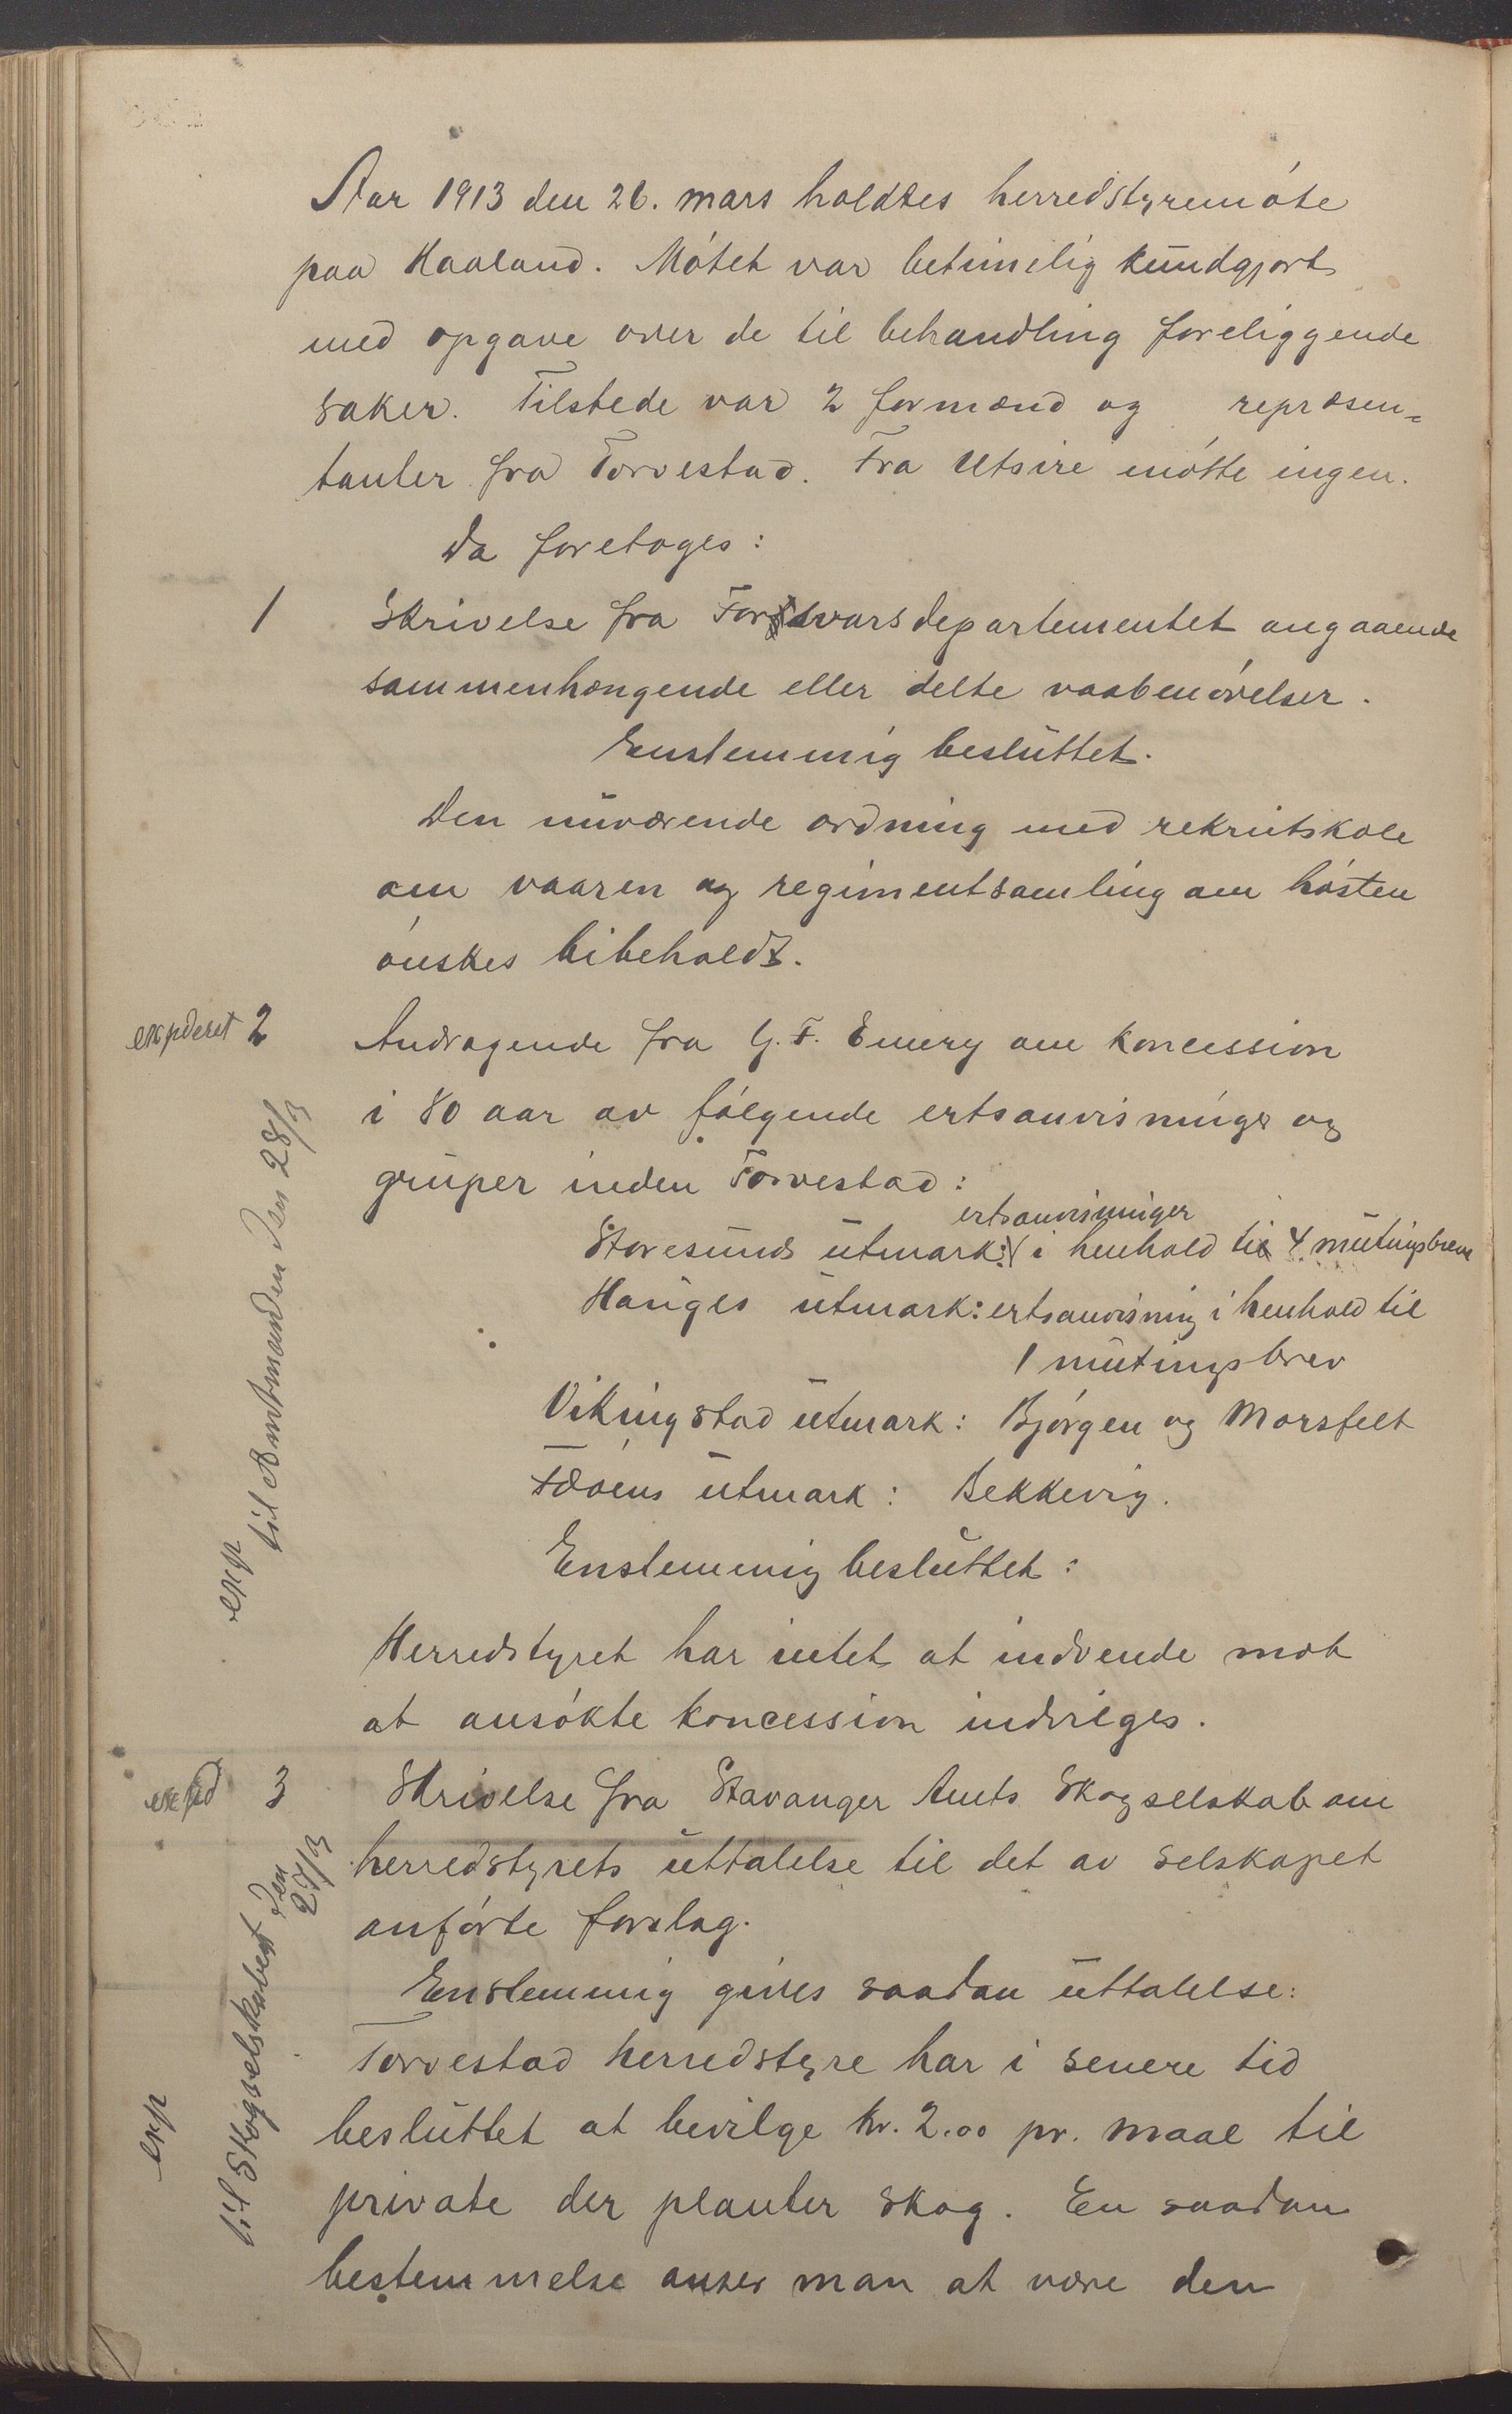 Aar 1913 den 26. mars holdtes herredstyremöte
paa Haaland. Mötet var betimelig kundgjort
med opgave over de til behandling foreliggende
saker. Tilstede var 2 formænd og repræsen=
tanter fra Torvestad. Fra Utsire mötte ingen.
Da foretoges:
1 Skrivelse fra Forsvarsdepartementet angaaende
sammenhængende eller delte vaabenövelser.
Enstemmig besluttet.
Den nuværende ordning med rekrutskole
om vaaren og regimentsamling om hösten
önskes bibeholdt.
expderet 2 Andragende fra G. F. Emery om koncession
i 80 aar av fölgende ertsanvisninger og
gruper inden Torvestad:
ertsanvisninger
Storesunds utmark: i henhold til 4 mutingsbreve
Hauges utmark: ertsanvisning i henhold til
1 mutingsbrev
Vikingstad utmark: Björgen og Marsfelt
Fæöens utmark: Bekkevig.
Enstemmig besluttet:
Herredstyret har intet at indvende mot
at ansökte koncession indvilges.
exp til Amtmanden den 28/3
expd 3 Skrivelse fra Stavanger Amts Skogselskab om
herredstyrets uttalelse til det av selskapet
anförte forslag.
Enstemmig gives saadan uttalelse:
Torvestad herredstyre har i senere tid
besluttet at bevilge kr. 2.00 pr. maal til
private der planter skog. En saadan
bestemmelse anser man at være den
exp til Skogselskabet den 27/3